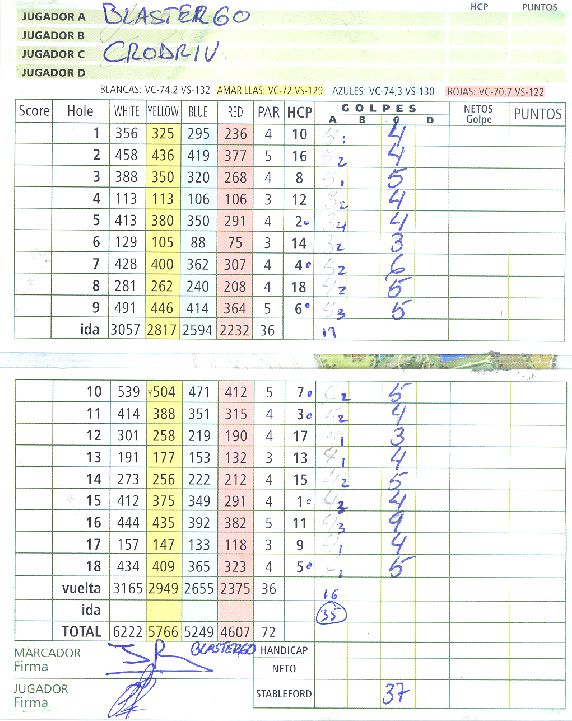 HCP PUNTOS
JUGADOR A BLASTERGO
JUGADOR B
JUGADOR C CRODRIV
JUGADOR D
BLANCAS: VC-74,2 VS-132 AMARILLAS: VC-72 VS-129 AZULES: VC-74,3 VS-130 ROJAS: VC-70,7 VS-122
Score Hole WHITE YELLOW BLUE RED PAR HCP GOLPES A B C D NETOS Golpe PUNTOS
1 356 325 295 236 4 10 4
2 458 436 419 377 5 16 2 4
3 388 350 320 268 4 8 1 5
4 113 113 106 106 3 12 2 4
5 413 380 350 291 4 2 4 4
6 129 105 88 75 3 14 2 3
7 428 400 362 307 4 4 2 6
8 281 262 240 208 4 18 2 5
9 491 446 414 364 5 6 3 5
ida 3057 2817 2594 2232 36
10 539 504 471 412 5 7 2 5
11 414 388 351 315 4 3 2 4
12 301 258 219 190 4 17 1 3
13 191 177 153 132 3 13 1 4
14 273 256 222 212 4 15 2 5
15 412 375 349 291 4 1 4
16 444 435 392 382 5 11 3 9
17 157 147 133 118 3 9 1 4
18 434 409 365 323 4 5 1 5
vuelta 3165 2949 2655 2375 36 16
ida 35
TOTAL 6222 5766 5249 4607 72
MARCADOR Firma BLASTERGO HANDICAP
NETO
JUGADOR Firma STABLEFORD 37